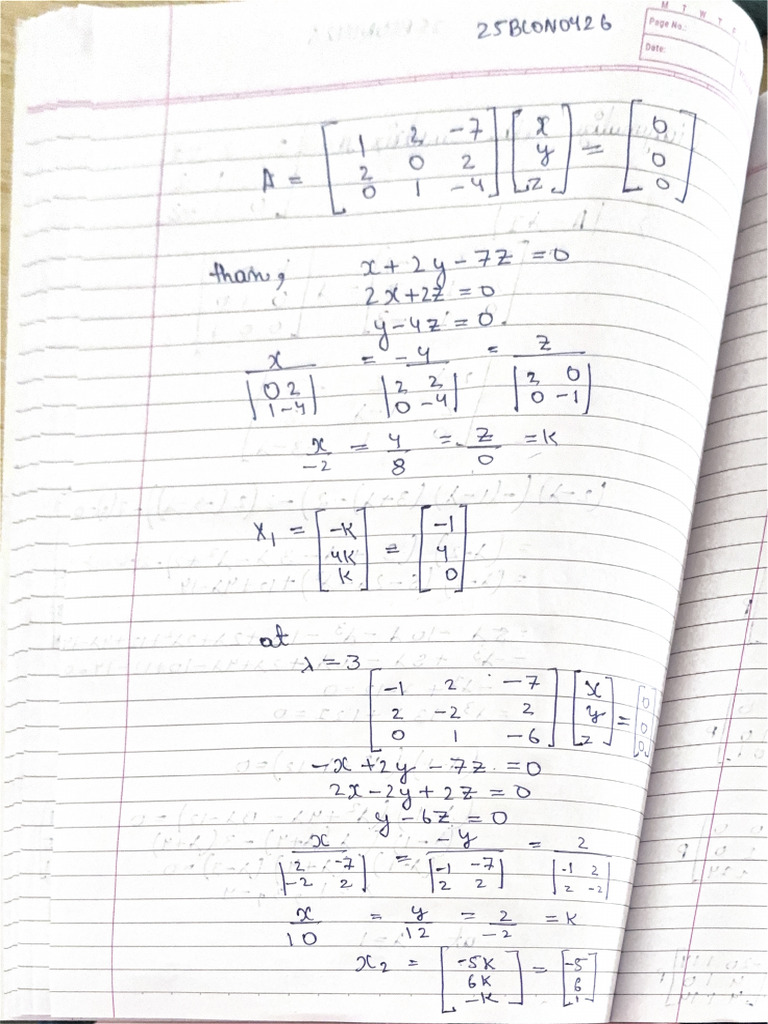 M T W T F
Page No.:
Date:
25BCON0426
A = [1 2 -7; 2 0 2; 0 1 -4] [x; y; z] = [0; 0; 0]
than, x + 2y - 7z = 0
2x + 2z = 0
y - 4z = 0.
x / |0 2; 1 -4| = -y / |2 2; 0 -4| = z / |2 0; 0 -1|
x/-2 = y/8 = z/0 = K
X₁ = [-K; 4K; K] = [-1; 4; 0]
at
λ = 3 [-1 2 -7; 2 -2 2; 0 1 -6] [x; y; z] = [0; 0; 0]
-x + 2y - 7z = 0
2x - 2y + 2z = 0
y - 6z = 0
x / |2 -7; -2 2| = -y / |-1 -7; 2 2| = z / |-1 2; 2 -2|
x/10 = y/12 = z/-2 = K
x₂ = [-5K; 6K; -K] = [-5; 6; 1]